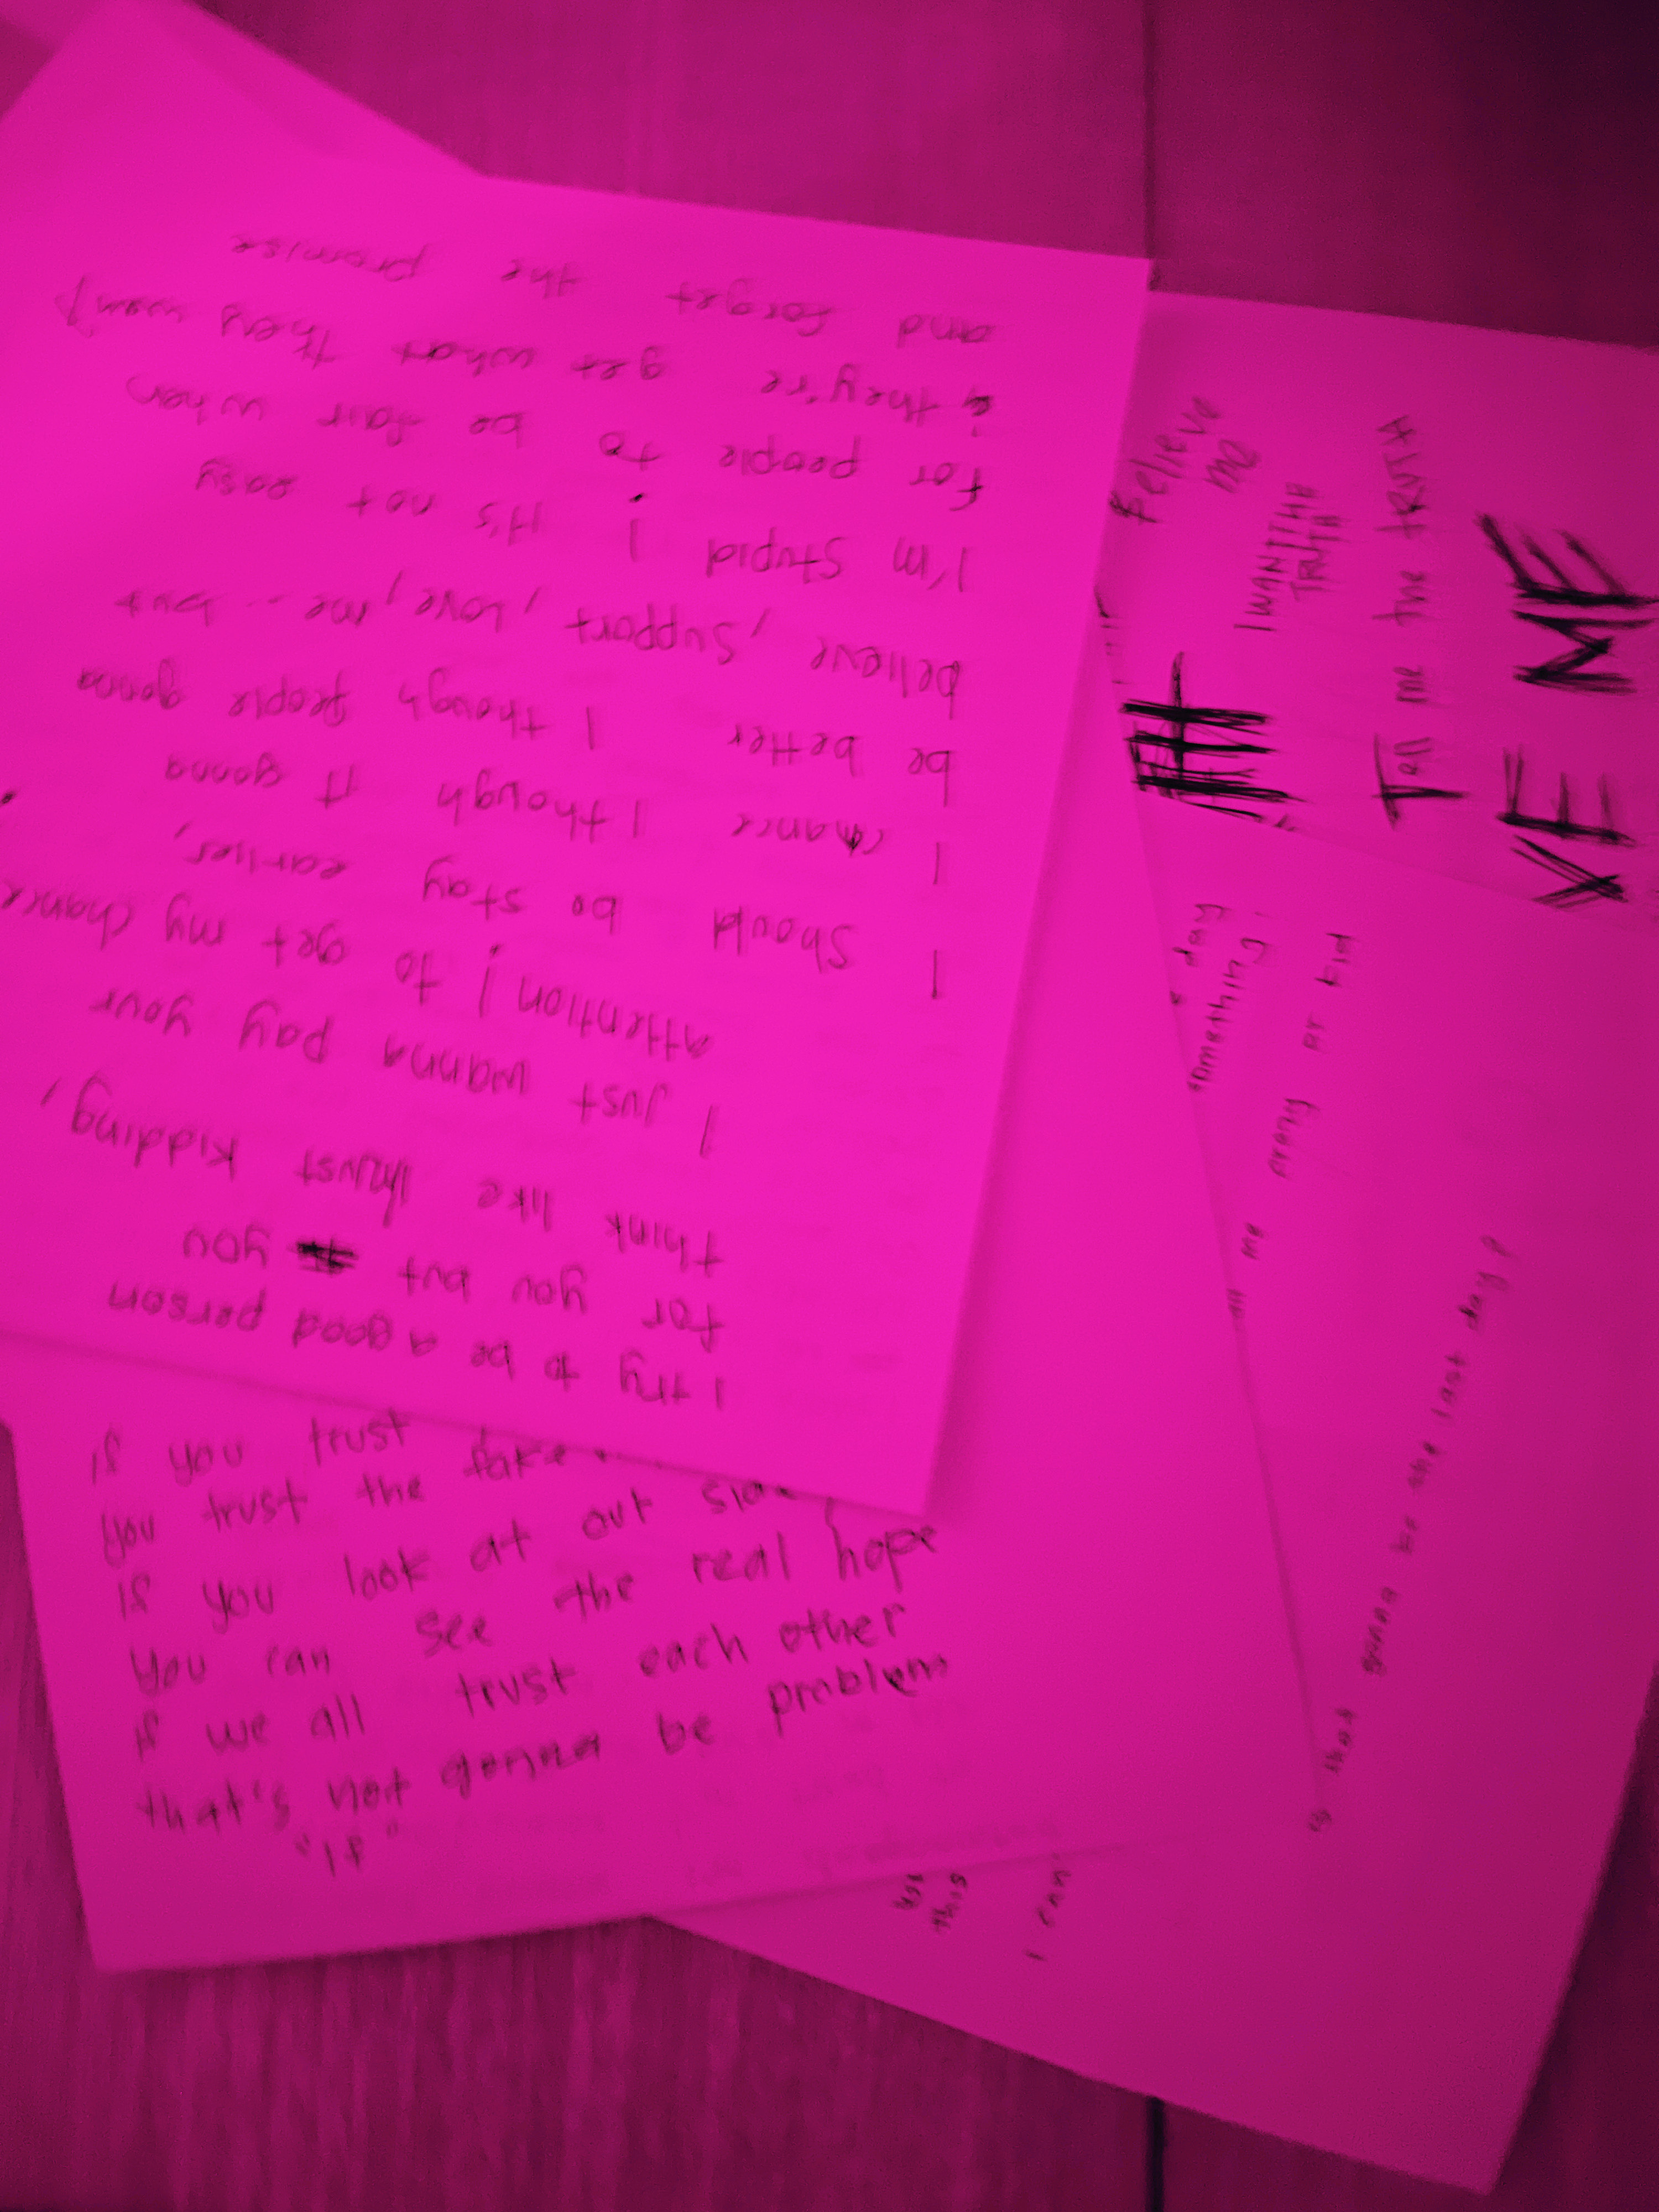 I try to be a good person
for you but you
think like kidding,
I just wanna pay your
attention ; to get my chance
I should be stay earlier,
I chance I though it gonna
be better I though people gonna
believe, support, love, me -- but
I'm stupid ; it's not easy
for people to be fair when
they're get what they
and forget the promise
if you trust
you trust the fake
if you look at out
you can see the real hope
if we all trust each other
that's not gonna be problem
"If"
Believe
me
I WANT THE
TRUTH
Tell me the tRUTH
VE ME
day
something
me or kid
that gonna be the last day?
this
I can